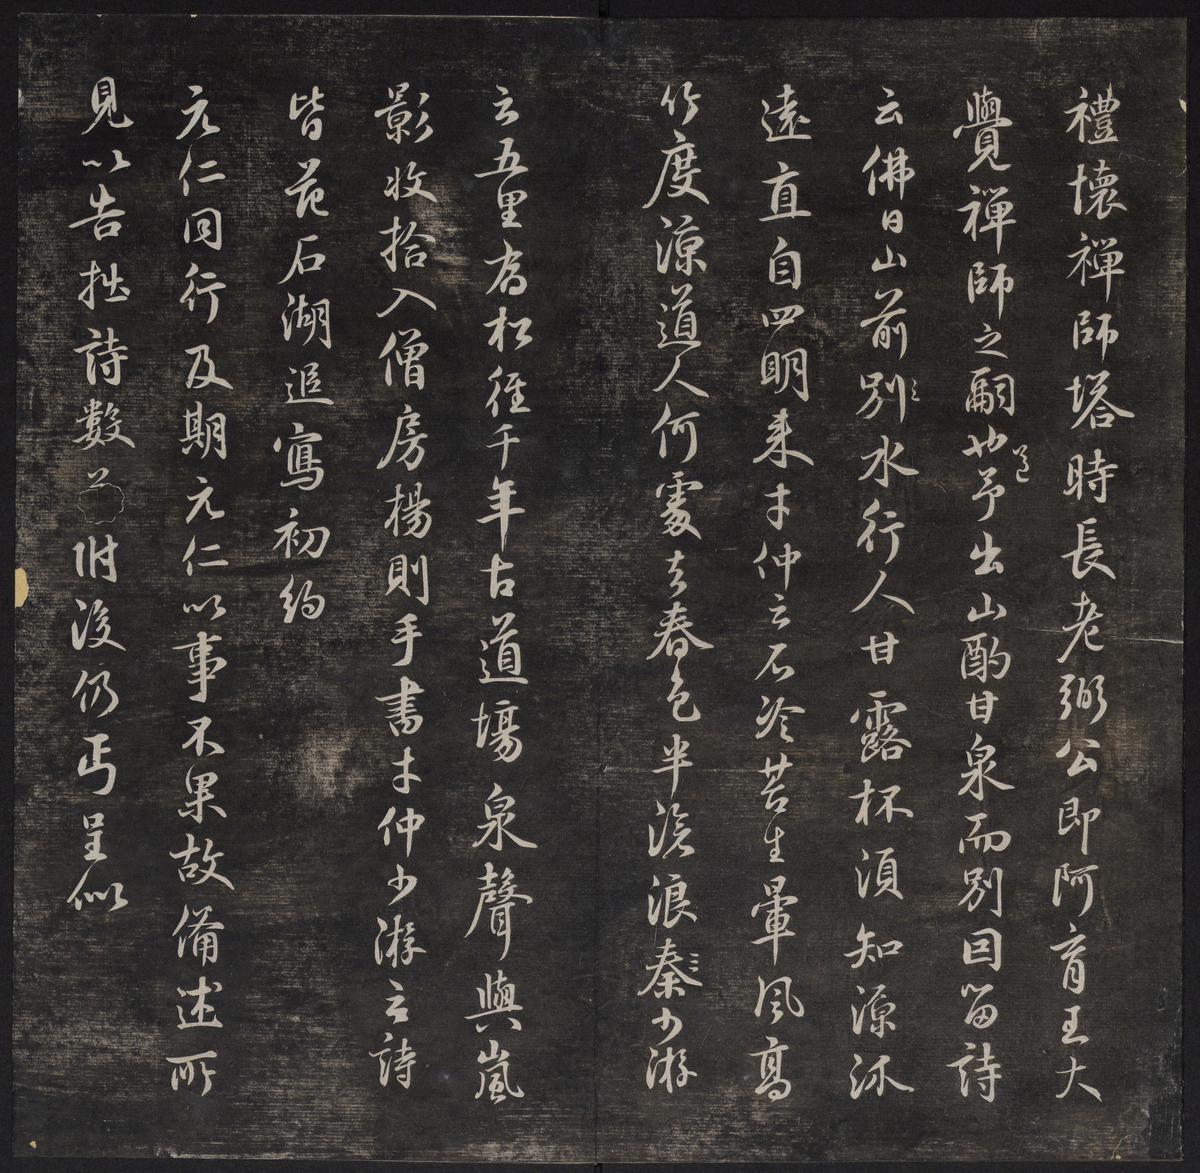 禮懷禪師塔時長老弼公即阿育王大
覺禪師之嗣也予出山酌甘泉而別因留詩
云佛日山前別水行人甘露杯須知源派
遠直自四明來才仲云石冷苔生暈風高
竹度涼道人何處去春色半滄浪秦少游
云五里有松徑千年古道場泉聲與嵐
影收拾入僧房楊則手書才仲少游之詩
皆范石湖追寫初約
元仁同行及期元仁以事不果故備述所
見以告拙詩數首附後仍丐呈似